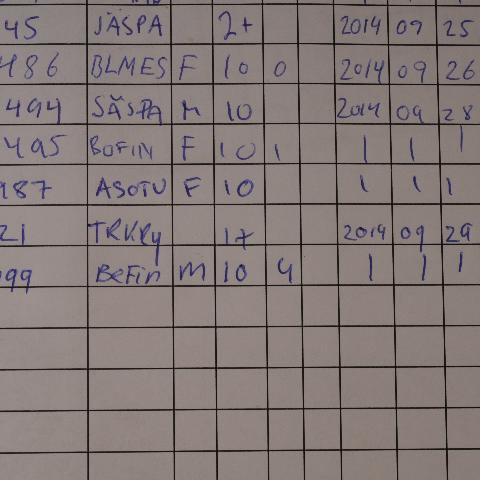 45 JÄSPA 2+ 2014 09 25
486 BLMES F 10 0 2014 09 26
494 SÄSPA M 10 2014 09 28
495 BOFIN F 10 1 | | |
487 ASOTU F 10 | | |
21 TRKRY 1+ 2014 09 29
499 BeFin M 10 4 | | |